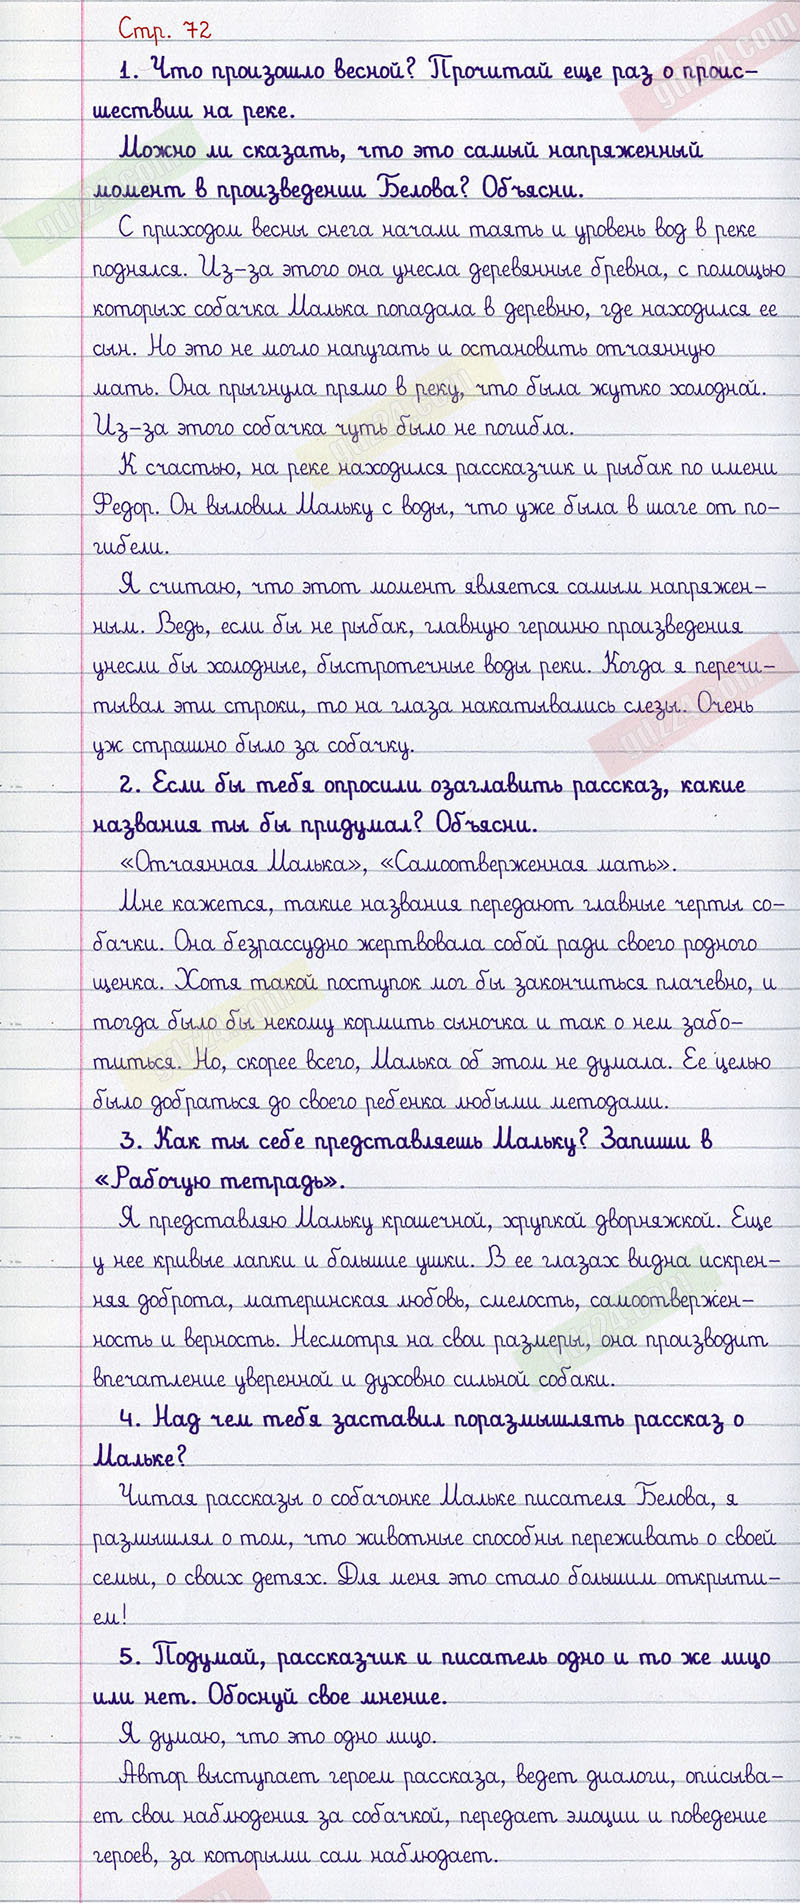 Стр. 72
1. Что произошло весной? Прочитай еще раз о проис-
шествии на реке.
Можно ли сказать, что это самый напряженный
момент в произведении Белова? Объясни.
С приходом весны снега начали таять и уровень вод в реке
поднялся. Из-за этого она унесла деревянные бревна, с помощью
которых собачка Малька попадала в деревню, где находился ее
сын. Но это не могло напугать и остановить отчаянную
мать. Она прыгнула прямо в реку, что была жутко холодной.
Из-за этого собачка чуть было не погибла.
К счастью, на реке находился рассказчик и рыбак по имени
Федор. Он выловил Мальку с воды, что уже была в шаге от по-
гибели.
Я считаю, что этот момент является самым напряжен-
ным. Ведь, если бы не рыбак, главную героиню произведения
унесли бы холодные, быстротечные воды реки. Когда я перечи-
тывал эти строки, то на глаза накатывались слезы. Очень
уж страшно было за собачку.
2. Если бы тебя опросили озаглавить рассказ, какие
названия ты бы придумал? Объясни.
«Отчаянная Малька», «Самоотверженная мать».
Мне кажется, такие названия передают главные черты со-
бачки. Она безрассудно жертвовала собой ради своего родного
щенка. Хотя такой поступок мог бы закончиться плачевно, и
тогда было бы некому кормить сыночка и так о нем забо-
титься. Но, скорее всего, Малька об этом не думала. Ее целью
было добраться до своего ребенка любыми методами.
3. Как ты себе представляешь Мальку? Запиши в
«Рабочую тетрадь».
Я представляю Мальку крошечной, хрупкой дворняжкой. Еще
у нее кривые лапки и большие ушки. В ее глазах видна искрен-
няя доброта, материнская любовь, смелость, самоотвержен-
ность и верность. Несмотря на свои размеры, она производит
впечатление уверенной и духовно сильной собаки.
4. Над чем тебя заставил поразмышлять рассказ о
Мальке?
Читая рассказы о собачонке Мальке писателя Белова, я
размышлял о том, что животные способны переживать о своей
семьи, о своих детях. Для меня это стало большим открыти-
ем!
5. Подумай, рассказчик и писатель одно и то же лицо
или нет. Обоснуй свое мнение.
Я думаю, что это одно лицо.
Автор выступает героем рассказа, ведет диалоги, описыва-
ет свои наблюдения за собачкой, передает эмоции и поведение
героев, за которыми сам наблюдает.
gdz24.com
gdz24.com
gdz24.com
gdz24.com
gdz24.com
gdz24.com